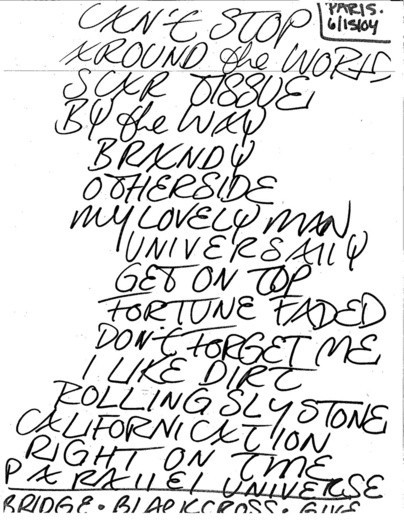 PARIS.
6/15/04
CAN'T STOP
AROUND the WORLD
SCAR TISSUE
BY the WAY
BRANDY
OTHERSIDE
MY LOVELY MAN
UNIVERSALLY
GET ON TOP
FORTUNE FADED
DON'T FORGET ME
I LIKE DIRT
ROLLING SLY STONE
CALIFORNICATION
RIGHT ON TIME
PARALLEL UNIVERSE
BRIDGE · BLACKCROSS · GIVE